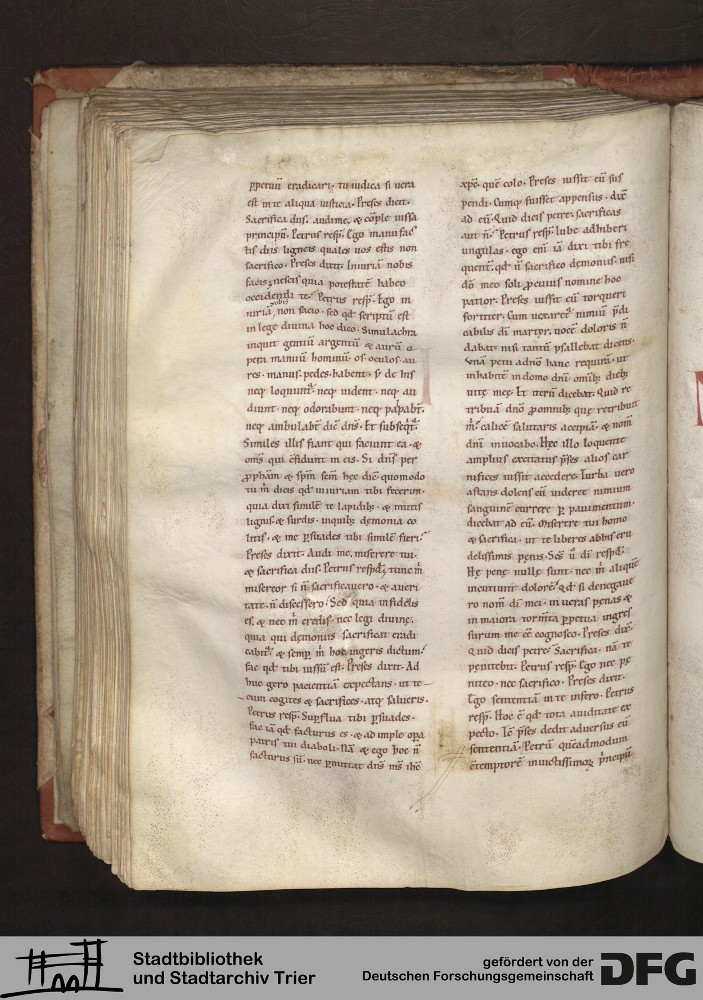 ppetuũ eradicari; tu iudica si uera
est in te aliqua iusticia. Preses dixit.
Sacrifica diis. audi me. & cõple iussa
principũ. Petrus resp̃. Ego manu fac
tis diis ligneis quales uos estis non
sacrifico. Preses dixit. Iniuriã nobis
facis; nescis quia potestatẽ habeo
occidendi te. Petrus resp̃. Ego in
nobis
iuriã non facio. sed qđ scriptũ est
in lege diuina hoc dico. Simulachra
inquit gentiũ argentũ & aurũ o
pera manuũ hominũ. os. oculos. au
res. manus. pedes. habent. s; de his
neq; loquunt̃. neq; uident. neq; au
diunt. neq; odorabunt. neq; palpabt̃.
neq; ambulabt̃ dic̃ dñs. Et subseqt̃.
Similes illis fiant qui faciunt ea. &
oms̃ qui cfidunt in eis. Si dñs per
pph̃am & spm̃ sem̃ hec dic̃ quomodo
tu m̃ dicis qđ iniuriam tibi fecerim.
quia dixi similẽ te lapidib; & mutis
lignis & surdis. inquib; dẹmonia co
litis. & me psuades tibi similẽ fieri.
Preses dixit. Audi me. miserere tui.
& sacrifica diis. Petrus respđ. tunc m̃
misereor si ñ sacrificauero. & aueri
tate ñ discessero. Sed quia infidelis
es. & nec m̃ credis. nec legi diuinẹ.
quia qui dẹmoniis sacrificat eradi
cabit̃. & semp m̃ hoc ingeris dictum.
fac qđ tibi iussũ est. Preses dixit. Ad
huc gero pacientiã expectans. ut te
cum cogites & sacrifices. atq; salueris.
Petrus resp̃. Supflua tibi psuades.
fac iã qđ facturus es. & ad imple opa
patris tui diaboli. Nã & ego hoc ñ
facturus sũ. nec pmittat dñs ms̃ ihc̃
xpc̃. quẽ colo. Preses iussit eũ sus
pendi. Cumq; fuisset appensus. dix̃
ad eũ. Quid dicis petre. sacrificas
aut ñ. Petrus resp̃. Iube adhiberi
ungulas. ego eni iã dixi tibi fre
quent̃. qđ ñ sacrifico dẹmoniis. nisi
dõ meo soli. pcuius nomine hoc
patior. Preses iussit eũ torqueri
fortiter. Cum uexaret̃ nimiũ pdi
cabilis di martyr. uocẽ doloris ñ
dabat. nisi tantũ psallebat dicens.
Vnã petii adñõ hanc requirã. ut
inhabitẽ in domo dñi omĩb; dieb;
uitẹ meẹ. Et iterũ dicebat. Quid re
tribuã dñõ pomnib; que retribuit
m̃. calicẽ salutaris accipiã. & nom̃
dñi inuocabo. Hẹc illo loquente
amplius excitatus pses alios car
nifices iussit accedere. Turba uero
astans dolens eũ uideret nimium
sanguinẽ currere p pauimentum.
dicebat ad eũ. Miserere tui homo
& sacrifica. ut te liberes abhis cru
delissimis penis. Scs̃ ũ di resp̃.
Hẹ penẹ nullẹ sunt. nec m̃ aliquẽ
incutiunt dolorẽ. Qđ si denegaue
ro nom̃ di mei. in ueras pẹnas &
in maiora torm̃ta ppetua ingres
surum me ẽẽ cognosco. Preses dix̃.
Quid dicis petre. Sacrifica. nã te
pẹnitebit. Petrus resp̃. Ego nec pẹ
niteo. nec sacrifico. Preses dixit.
Ego sententiã in te infero. Petrus
resp̃. Hoc ẽ qđ tota auiditate ex
pecto. Tc̃ pses dedit aduersus eũ
sententiã. Petrũ quẽadmodum
ctemptorẽ inuictissimoꝝ pncipũ
Stadtbibliothek
und Stadtarchiv Trier
gefördert von der
Deutschen Forschungsgemeinschaft
DFG